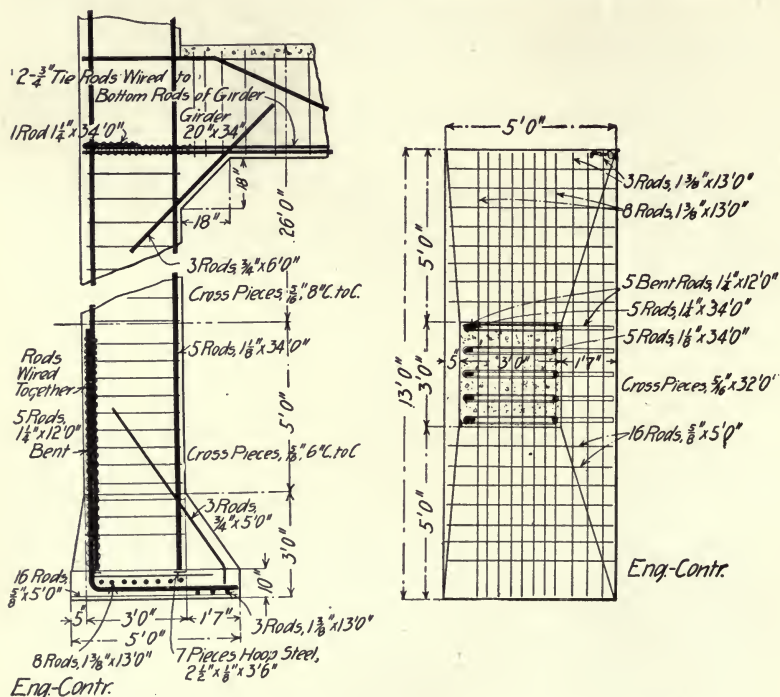 2-3/4" Tie Rods Wired to
Bottom Rods of Girder
Girder
20"x34"
1 Rod 1 1/4"x34'0"
18"
18"
26'0"
3 Rods, 3/4"x6'0"
Cross Pieces, 5/16", 8"C. to C.
Rods
Wired
Together
5 Rods, 1 1/8"x34'0"
5 Rods,
1 1/4"x12'0"
Bent
5'0"
Cross Pieces, 5/16", 6"C. to C
3 Rods,
3/4"x5'0"
3'0"
10"
16 Rods,
5/8"x5'0"
5"
3'0"
1'7"
3 Rods, 1 3/8"x13'0"
5'0"
8 Rods, 1 3/8"x13'0"
7 Pieces Hoop Steel,
2 1/2"x1/8"x3'6"
Eng-Contr.
5'0"
3 Rods, 1 3/8"x13'0"
8 Rods, 1 3/8"x13'0"
5'0"
5 Bent Rods, 1 1/4"x12'0"
5 Rods, 1 1/4"x34'0"
5 Rods, 1 1/8"x34'0"
13'0"
3'0"
5"
3'0"
1'7"
Cross Pieces, 5/16"x32'0"
16 Rods, 5/8"x5'0"
5'0"
Eng.-Contr.